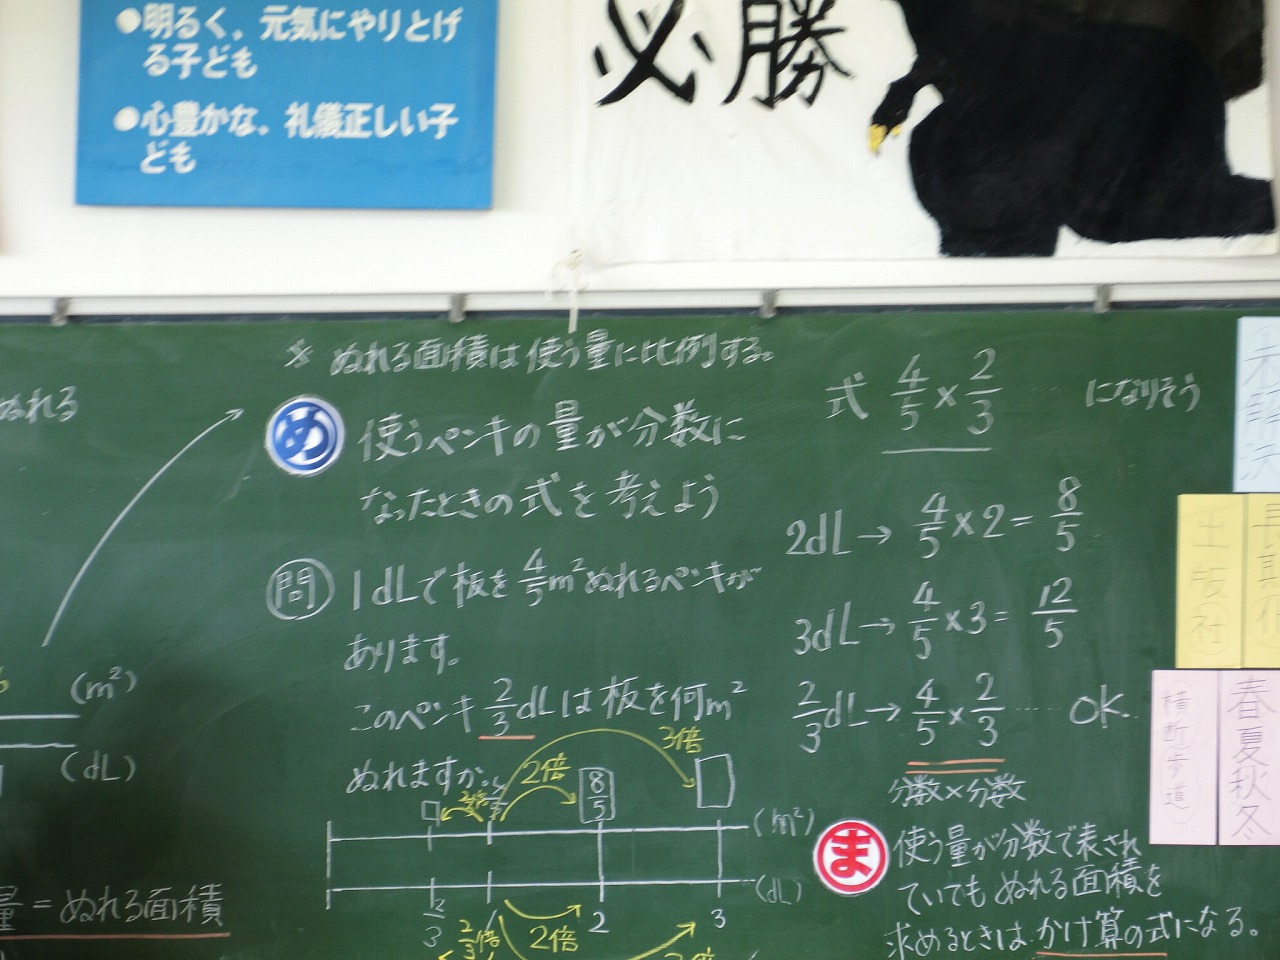 ●明るく、元気にやりとげ
る子ども
●心豊かな、礼儀正しい子
ども
必勝
ぬれる
(m²)
(dL)
量=ぬれる面積
※ ぬれる面積は使う量に比例する。
め 使うペンキの量が分数に
なったときの式を考えよう
問 1dLで板を4/5m²ぬれるペンキが
あります。
このペンキ2/3dLは板を何m²
ぬれますか。
3倍
2倍
□ 4/5 8/5 □ (m²)
2/3 1 2 3 (dL)
2/3倍 2倍
式 4/5×2/3 …… になりそう
2dL→ 4/5×2=8/5
3dL→ 4/5×3=12/5
2/3dL→ 4/5×2/3 …… OK.
分数×分数
ま 使う量が分数で表され
ていても ぬれる面積を
求めるときは かけ算の式になる。
出版社
春夏秋冬
横断歩道